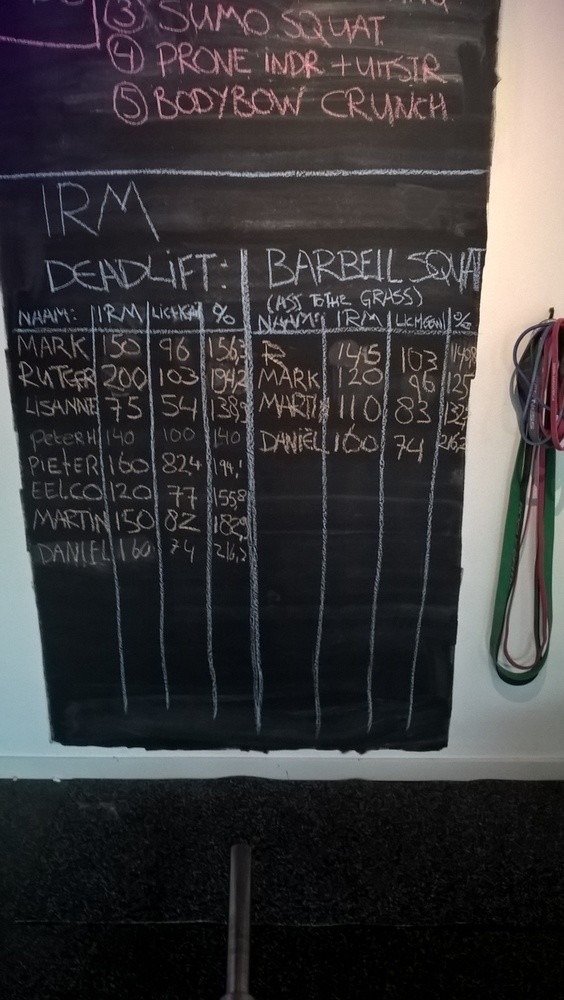 ③ SUMO SQUAT
④ PRONE INDR + UITSTR
⑤ BODYBOW CRUNCH
1RM
DEADLIFT:
NAAM: 1RM LICHGEW %
MARK 150 96 156,3
RUTGER 200 103 194,2
LISANNE 75 54 138,9
PETERH 140 100 140
PIETER 160 82,4 194,1
EELCO 120 77 155,8
MARTIN 150 82 182,9
DANIEL 160 74 216,2
BARBELL SQUAT
(ASS TO THE GRASS)
NAAM: 1RM LICHGEW %
R 145 103
MARK 120 96 125
MARTIN 110 83 132,5
DANIEL 160 74 216,2